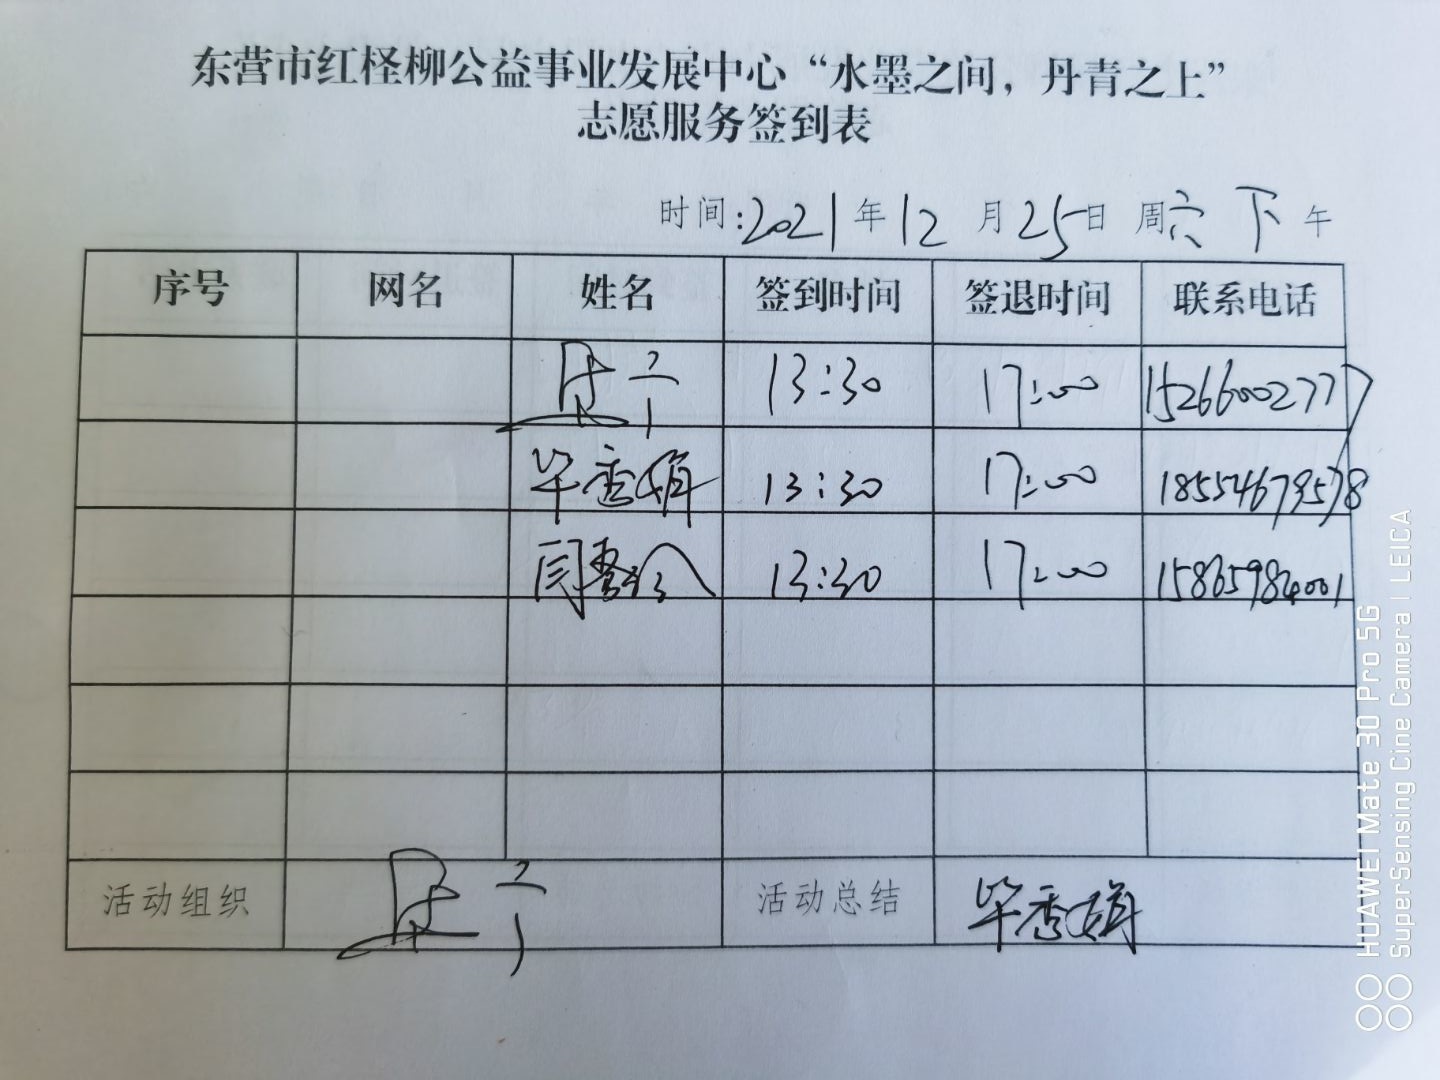 东营市红柽柳公益事业发展中心“水墨之间，丹青之上”
志愿服务签到表
时间:2021年12月25日 周六 下午
序号 网名 姓名 签到时间 签退时间 联系电话
13:30 17:00 15266002777
毕秀娟 13:30 17:00 18554679578
闫 13:30 17:00 15865984001
活动组织 活动总结 毕秀娟
HUAWEI Mate 30 Pro 5G
SuperSensing Cine Camera | LEICA